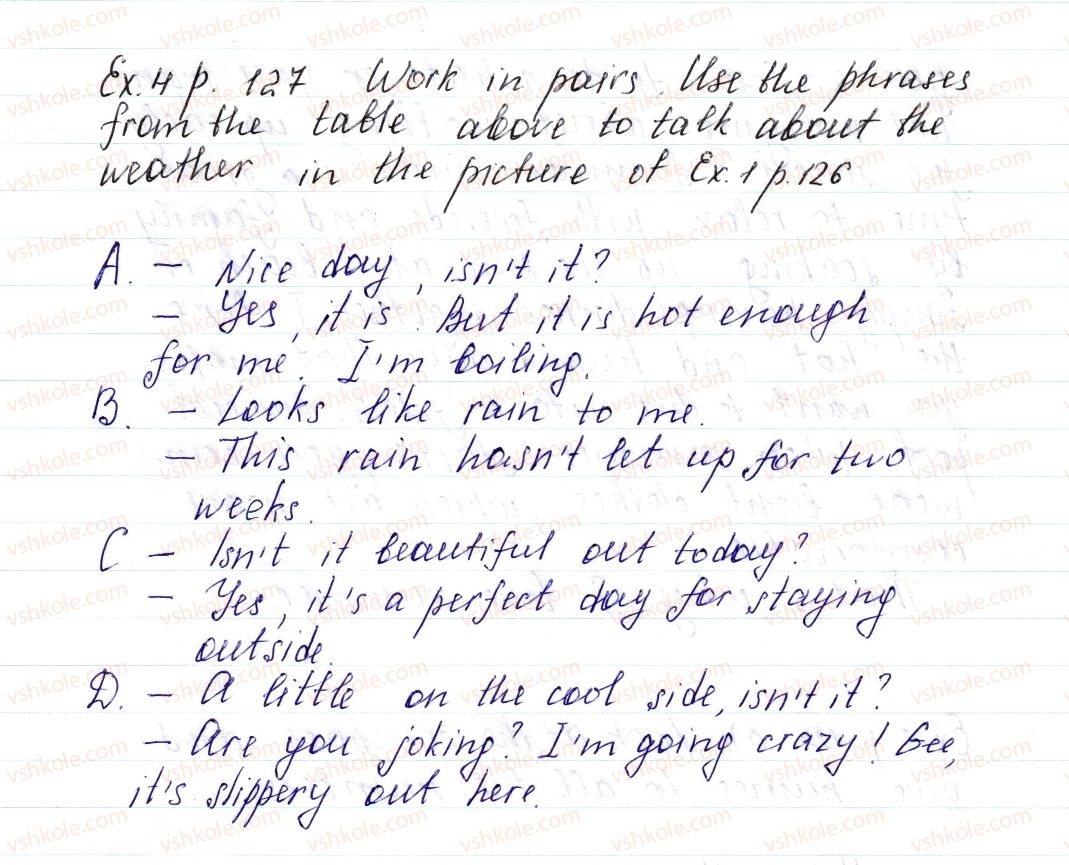 Ex.4 p. 127 Work in pairs. Use the phrases
from the table above to talk about the
weather in the picture of Ex.1 p.126
A. – Nice day, isn't it?
– Yes, it is. But it is hot enough
for me. I'm boiling.
B. – Looks like rain to me.
– This rain hasn't let up for two
weeks.
C – Isn't it beautiful out today?
– Yes, it's a perfect day for staying
outside.
D. – A little on the cool side, isn't it?
– Are you joking? I'm going crazy! Gee,
it's slippery out here.
vshkole.com